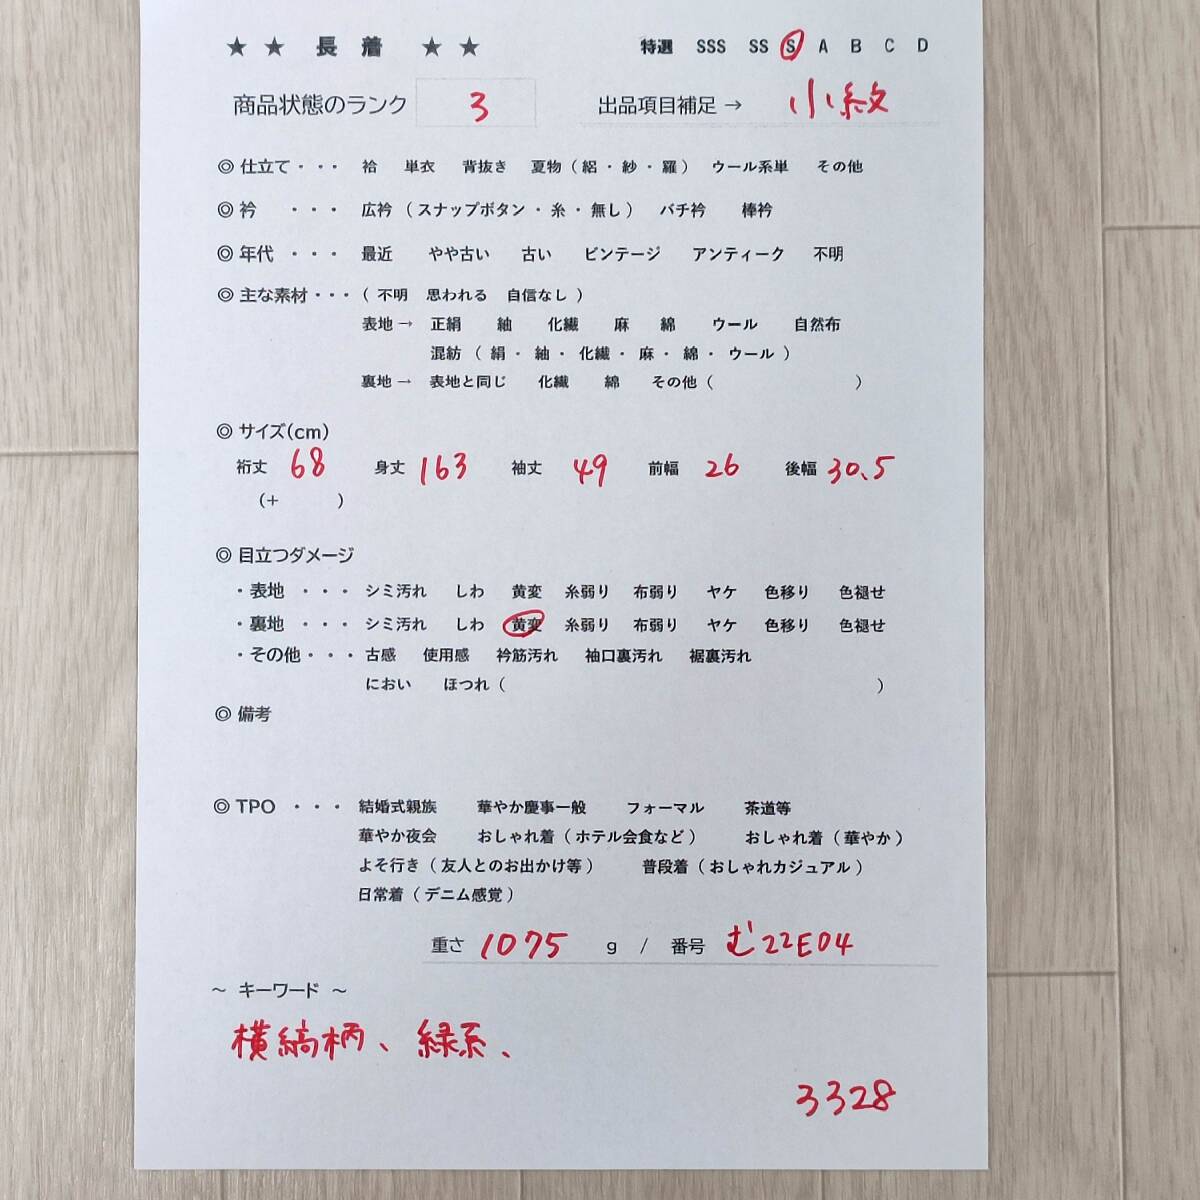 ★ ★ 長 着 ★ ★ 特選 SSS SS S A B C D
商品状態のランク 3 出品項目補足 → 小紋
◎ 仕立て・・・ 袷 単衣 背抜き 夏物(絽・紗・羅) ウール系単 その他
◎ 衿 ・・・ 広衿(スナップボタン・糸・無し) バチ衿 棒衿
◎ 年代 ・・・ 最近 やや古い 古い ビンテージ アンティーク 不明
◎ 主な素材・・・(不明 思われる 自信なし)
表地→ 正絹 紬 化繊 麻 綿 ウール 自然布
混紡(絹・紬・化繊・麻・綿・ウール)
裏地→ 表地と同じ 化繊 綿 その他( )
◎ サイズ(cm)
裄丈 68 身丈 163 袖丈 49 前幅 26 後幅 30.5
(+ )
◎ 目立つダメージ
・表地 ・・・ シミ汚れ しわ 黄変 糸弱り 布弱り ヤケ 色移り 色褪せ
・裏地 ・・・ シミ汚れ しわ 黄変 糸弱り 布弱り ヤケ 色移り 色褪せ
・その他・・・ 古感 使用感 衿筋汚れ 袖口裏汚れ 裾裏汚れ
におい ほつれ( )
◎ 備考
◎ TPO ・・・ 結婚式親族 華やか慶事一般 フォーマル 茶道等
華やか夜会 おしゃれ着(ホテル会食など) おしゃれ着(華やか)
よそ行き(友人とのお出かけ等) 普段着(おしゃれカジュアル)
日常着(デニム感覚)
重さ 1075 g / 番号 む22E04
~ キーワード ~
横縞柄、緑系、
3328